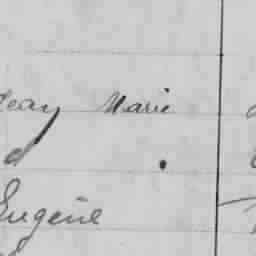 Jean Marie
d
Eugène